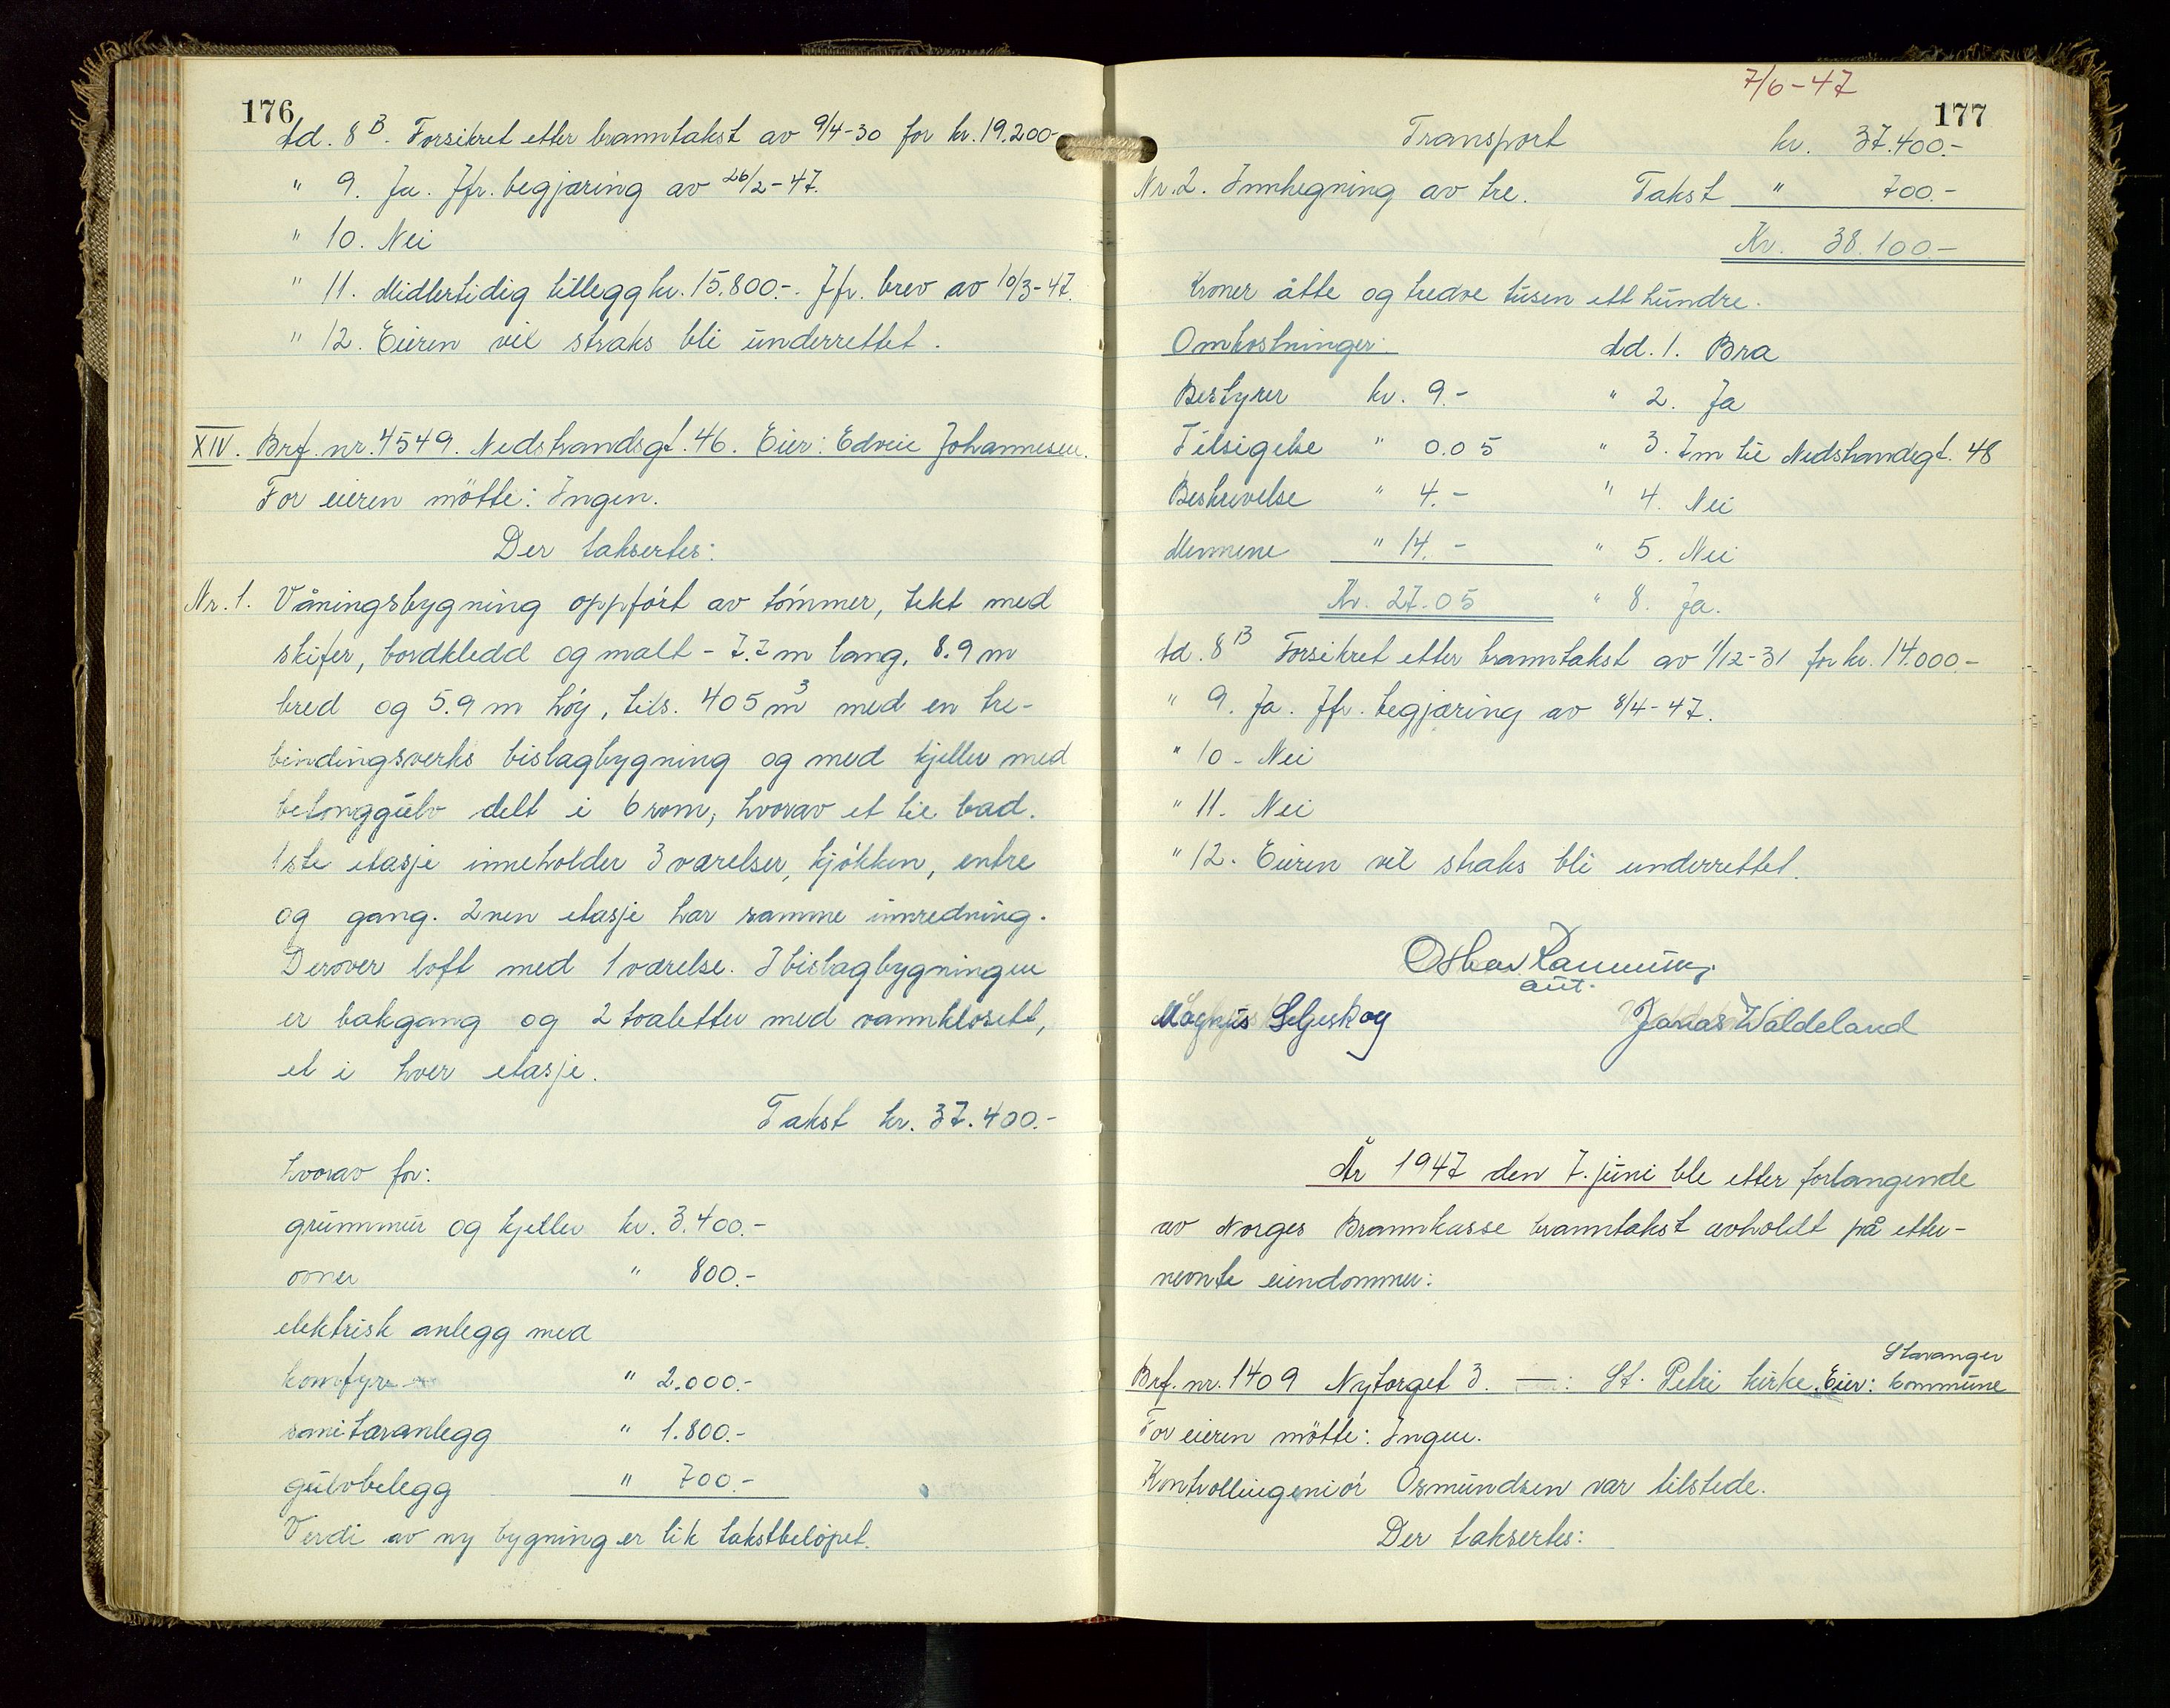 176
ad. 8 B. Forsikret etter branntakst av 9/4-30 for kr. 19.200-
" 9. Ja. Jfr. begjæring av 26/2-47.
" 10. Nei
" 11. Midlertidig tillegg kr. 15.800.-. Jfr. brev av 10/3-47.
" 12. Eieren vil straks bli underrettet.
XIV. Brf. nr. 4549. Nedstrandsgt. 46. Eier: Edvin Johannesen.
For eieren møtte: Ingen.
Der taksertes:
Nr. 1. Våningsbygning oppført av tømmer, tekt med
skifer, bordkledd og malt - 7.7 m lang, 8.9 m
bred og 5.9 m høy, tils. 405 m³ med en tre-
bindingsverks bislagbygning og med kjeller med
betonggulv delt i 6 rom, hvorav et til bad.
1ste etasje inneholder 3 værelser, kjøkken, entre
og gang. 2nen etasje har samme innredning.
Derover loft med 1 værelse. I bislagbygningen
er bakgang og 2 toaletter med vannklosett,
et i hver etasje.
Takst kr. 37.400.-
hvorav for:
grunnmur og kjeller kr. 3.400.-
ovner " 800.-
elektrisk anlegg med
komfyr " 2.000.-
sanitæranlegg " 1.800.-
gulvbelegg " 700.-
Verdi av ny bygning er lik takstbeløpet.
7/6-47
177
Transport kr. 37.400.-
Nr. 2. Innhegning av tre. Takst " 700.-
Kr. 38.100.-
Kroner åtte og tredve tusen ett hundre.
Omkostninger: ad. 1. Bra
Bestyrer kr. 9.- " 2. Ja
Tilsigelse " 0.05 " 3. 7 m til Nedstrandsgt. 48
Beskrivelse " 4.- " 4. Nei
Mennene " 14.- " 5. Nei
Kr. 27.05 " 8. Ja.
ad. 8 B Forsikret etter branntakst av 1/12-31 for kr. 14.000-
" 9. Ja. Jfr. begjæring av 8/4-47.
" 10- Nei
" 11. Nei
" 12. Eieren vil straks bli underrettet.
aut.
Magnus Seljeskog Jonas Waldeland
År 1947 den 7. juni ble etter forlangende
av Norges Brannkasse branntakst avholdt på etter-
nevnte eiendommer:
Stavanger
Brf. nr. 1409 Nytorget 3. —: St. Petri kirke. Eier: kommune
For eieren møtte: Ingen.
Kontrollingeniør Osmundsen var tilstede.
Der taksertes: